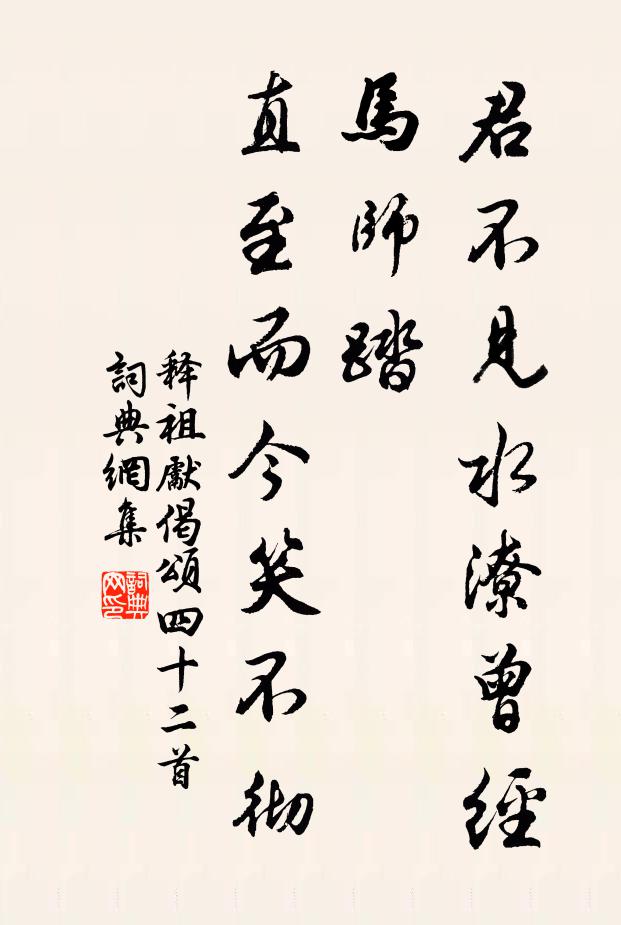 君不見水潦曾經
馬師踏
直至而今笑不彻
释祖獻偈頌四十二首
詞典網集
詞典网印